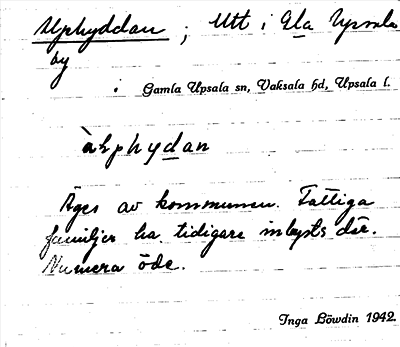 Uphyddan ; Utt i Gla Upsala
by
Gamla Upsala sn, Vaksala hd, Upsala l.
ùkphydan
Äges av kommunen. Fattiga
familjer ha tidigare inhysts där.
Numera öde.
Inga Löwdin 1942.